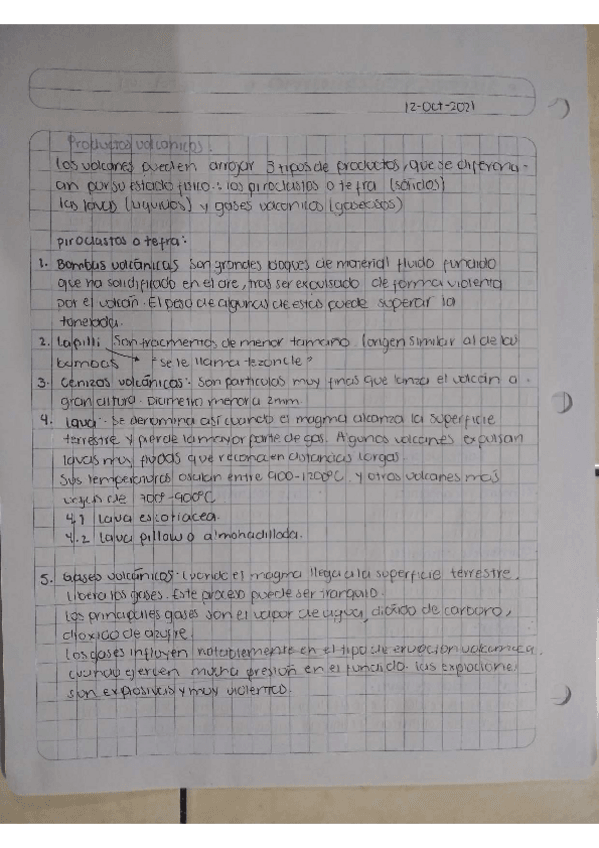 12-Oct-2021
Productos volcanicos:
Los volcanes pueden arrojar 3 tipos de productos, que se diferenci-
an por su estado fisico: los piroclastos o tefra (solidos)
las lavas (liquidos) y gases volcanicos (gaseosos)
piroclastos o tefra:
1. Bombas volcánicas son grandes bloques de material fluido fundido
que ha solidificado en el aire, tras ser expulsado de forma violenta
por el volcán. El peso de algunas de estas puede superar la
tonelada.
2. Lapilli son fracmentos de menor tamaño (origen similar al de las
bombas "se le llama tezoncle"
3. Cenizas volcánicas: Son particulas muy finas que lanza el volcán a
gran altura. Diametro menor a 2mm.
4. Lava- Se denomina así cuando el magma alcanza la superficie
terrestre y pierde la mayor parte de gas. Algunos volcanes expulsan
lavas muy fluidas que recorren distancias largas.
Sus temperaturas oscilan entre 900-1200°C y otros volcanes más
700°-900°C
4.1 Lava escoriacea.
4.2 Lava pillow o almohadillada.
5. Gases volcánicos- Cuando el magma llega a la superficie terrestre,
libera los gases. Este proceso puede ser tranquilo.
Los principales gases son el vapor de agua, dióxido de carbono,
dióxido de azufre.
Los gases influyen notablemente en el tipo de erupción volcánica.
cuando ejercen mucha presión en el fundido. las
son explosivas y muy violentas.